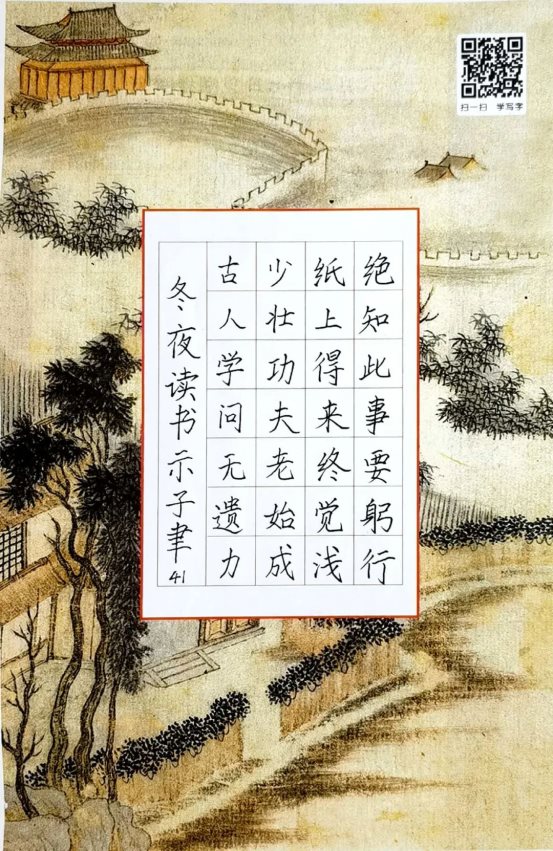 冬夜读书示子聿
41
古人学问无遗力
少壮功夫老始成
纸上得来终觉浅
绝知此事要躬行
扫一扫 学写字